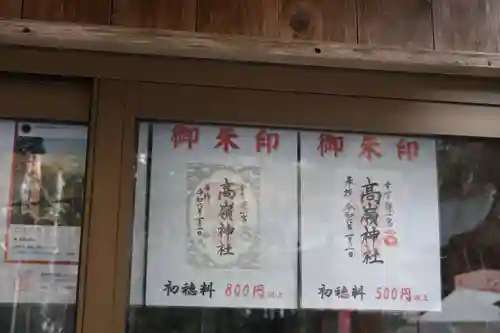 御朱印
高嶺神社
初穂料 800円以上
御朱印
奉拝
高嶺神社
初穂料 500円以上